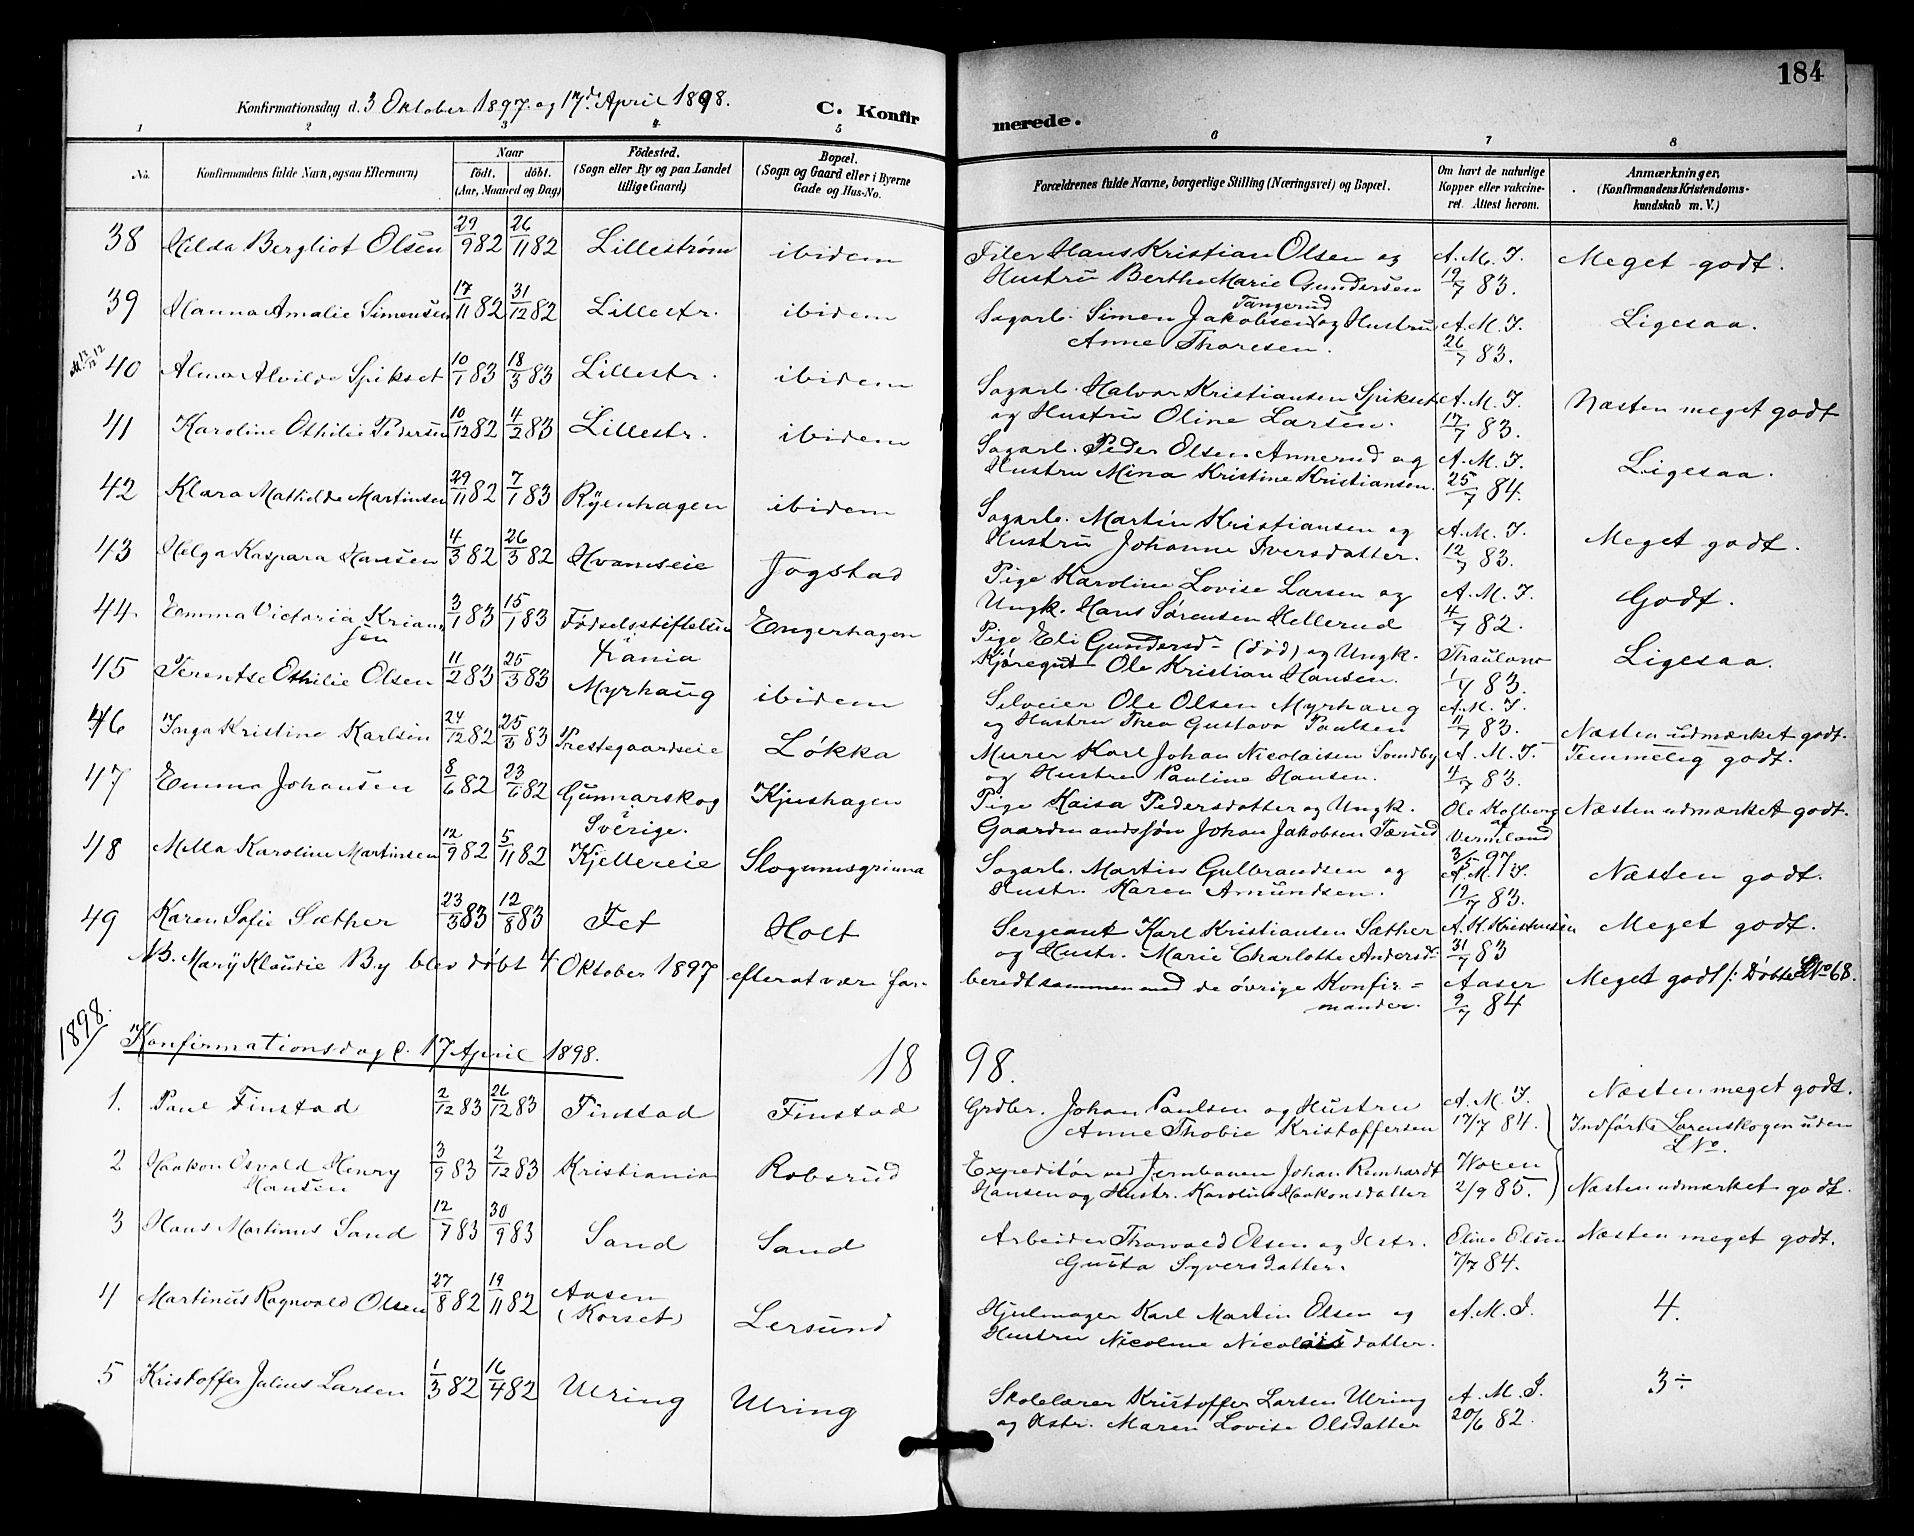 184
Konfirmationsdag d. 3 Oktober 1897 og 17de April 1898.
C. Konfirmerede.
1 2 3 4 5 6 7 8
No. Konfirmandens fulde Navn, (ogsaa Efternavn) Naar født. døbt. (Aar, Maaned og Dag) Fødested. (Sogn eller By og paa Landet tillige Gaard) Bopæl. (Sogn og Gaard eller i Byerne Gade og Hus-No. Forældrenes fulde Navne, borgerlige Stilling (Næringsvei) og Bopæl. Om havt de naturlige Kopper eller vakcineret. Attest herom. Anmærkninger. (Konfirmandens Kristendomskundskab m. V.)
38 Hilda Bergliot Olsen 29/9 82 26/11 82 Lillestrøm ibidem Filer Hans Kristian Olsen og A. M. I. Meget godt.
Hustru Berthe Marie Gundersen 19/7 83.
39 Hanna Amalie Simensen 17/11 82 31/12 82 Lillestr. ibidem Sagarb. Simen Jakobsen Tangerud og Hustru A. M. I. Ligesaa.
Anne Thoresen. 26/7 83.
40 Alma Alvilde Spikset 10/1 83 18/3 83 Lillestr. ibidem Sagarb. Halvor Kristiansen Spikset A. M. I. Næsten meget godt
og Hustru Oline Larsen. 17/7 83.
41 Karoline Othilie Pedersen 10/12 82 4/2 83 Lillestr. ibidem Sagarb. Peder Olsen Annerud og A. M. I. Ligesaa.
Hustru Mina Kristine Kristiansen. 25/7 84.
42 Klara Mathilde Martinsen 29/11 82 7/1 83 Ryenhagen ibidem Sagarb. Martin Kristiansen og A. M. I. Meget godt.
Hustru Johanne Iversdatter. 12/7 83.
43 Helga Kaspara Hansen 4/3 82 26/3 82 Hvamseie Jogstad Pige Karoline Lovise Larsen og A. M. I. Godt.
Ungk. Hans Sørensen Hellerud 4/7 82.
44. Emma Victoria Kriansen 3/1 83 15/1 83 Fødselsstiftelsen Kränia Engerhagen Pige Eli Gundersd. (død) og Ungk. Ligesaa.
Kjøregut Ole Kristian Hansen. 1/7 83.
45 Terentse Othilie Olsen 11/2 83 25/3 83 Myrhaug ibidem Selveier Ole Olsen Myrhaug A. M. I.
og Hustru Thea Gustava Paulsen 11/7 83. Næsten udmærket godt.
46 Inga Kristine Karlsen 24/12 82 25/3 83 Prestegaardseie Løkka Murer Karl Johan Nicolaisen Sundby A. M. I. Temmelig godt.
og Hustru Pauline Hansen. 4/7 83.
47 Emma Johansen 8/6 82 23/6 82 Gunnarskog Sverige. Kjushagen Pige Kaisa Pedersdatter og Ungk. Ole Kolberg Næsten udmærket godt.
Gaardmandssøn Johan Jakobsen af Vermland 3/5 97.
48 Milla Karoline Martinsen 12/9 82 5/11 82 Kjellereie Slogumsgrinna Sagarb. Martin Gulbrandsen og A. M. I. Næsten godt.
Hustr. Karen Amundsen. 19/7 83.
49 Karen Sofie Sæther 23/3 83 12/8 83 Fet Holt Sergeant Karl Kristiansen Sæther A. K. Kristensen Meget godt.
og Hustr. Marie Charlotte Andersd. 31/7 83
NB. Mary Klaudie By blev døbt 4 Oktober 1897 efter at vær forberedt sammen med de øvrige Konfirmander. Aaser 9/7 84 Meget godt /: Døbte LNo 68.
1898.
Konfirmationsdag d. 17 April 1898.
1898.
1. Paul Finstad 2/12 83 26/12 83 Finstad Finstad Grdbr. Johan Paulsen og Hustru A. M. I. Næsten meget godt.
Anne Thobie Kristoffersen 17/7 84. Indført i Lørenskogen uden LNo.
2 Haakon Osvald Henry Hansen 3/9 83 2/12 83 Kristiania Robsrud Expeditør ved Jernbanen Johan Reinhardt Woxen
Hansen og Hustr. Karoline Haakonsdatter 2/9 85. Næsten udmærket godt.
3 Hans Martinus Sand 12/7 83 30/9 83 Sand Sand Arbeider Thorvald Olsen og Hstr. Eline Elsen Næsten meget godt.
Gusta Syversdatter. 7/7 84.
4 Martinus Ragnvald Olsen 27/8 82 19/11 82 Aasen (Korset) Lersund Hjulmager Karl Martin Olsen og A. M. I. 4.
Hustru Nicoline Nicolaisdatter.
5 Kristoffer Julius Larsen 1/3 82 16/4 82 Ulring Ulring Skolelærer Kristoffer Larsen Ulring A. M. I. 3÷
og Hstr. Maren Lovise Olsdatter 20/6 82.